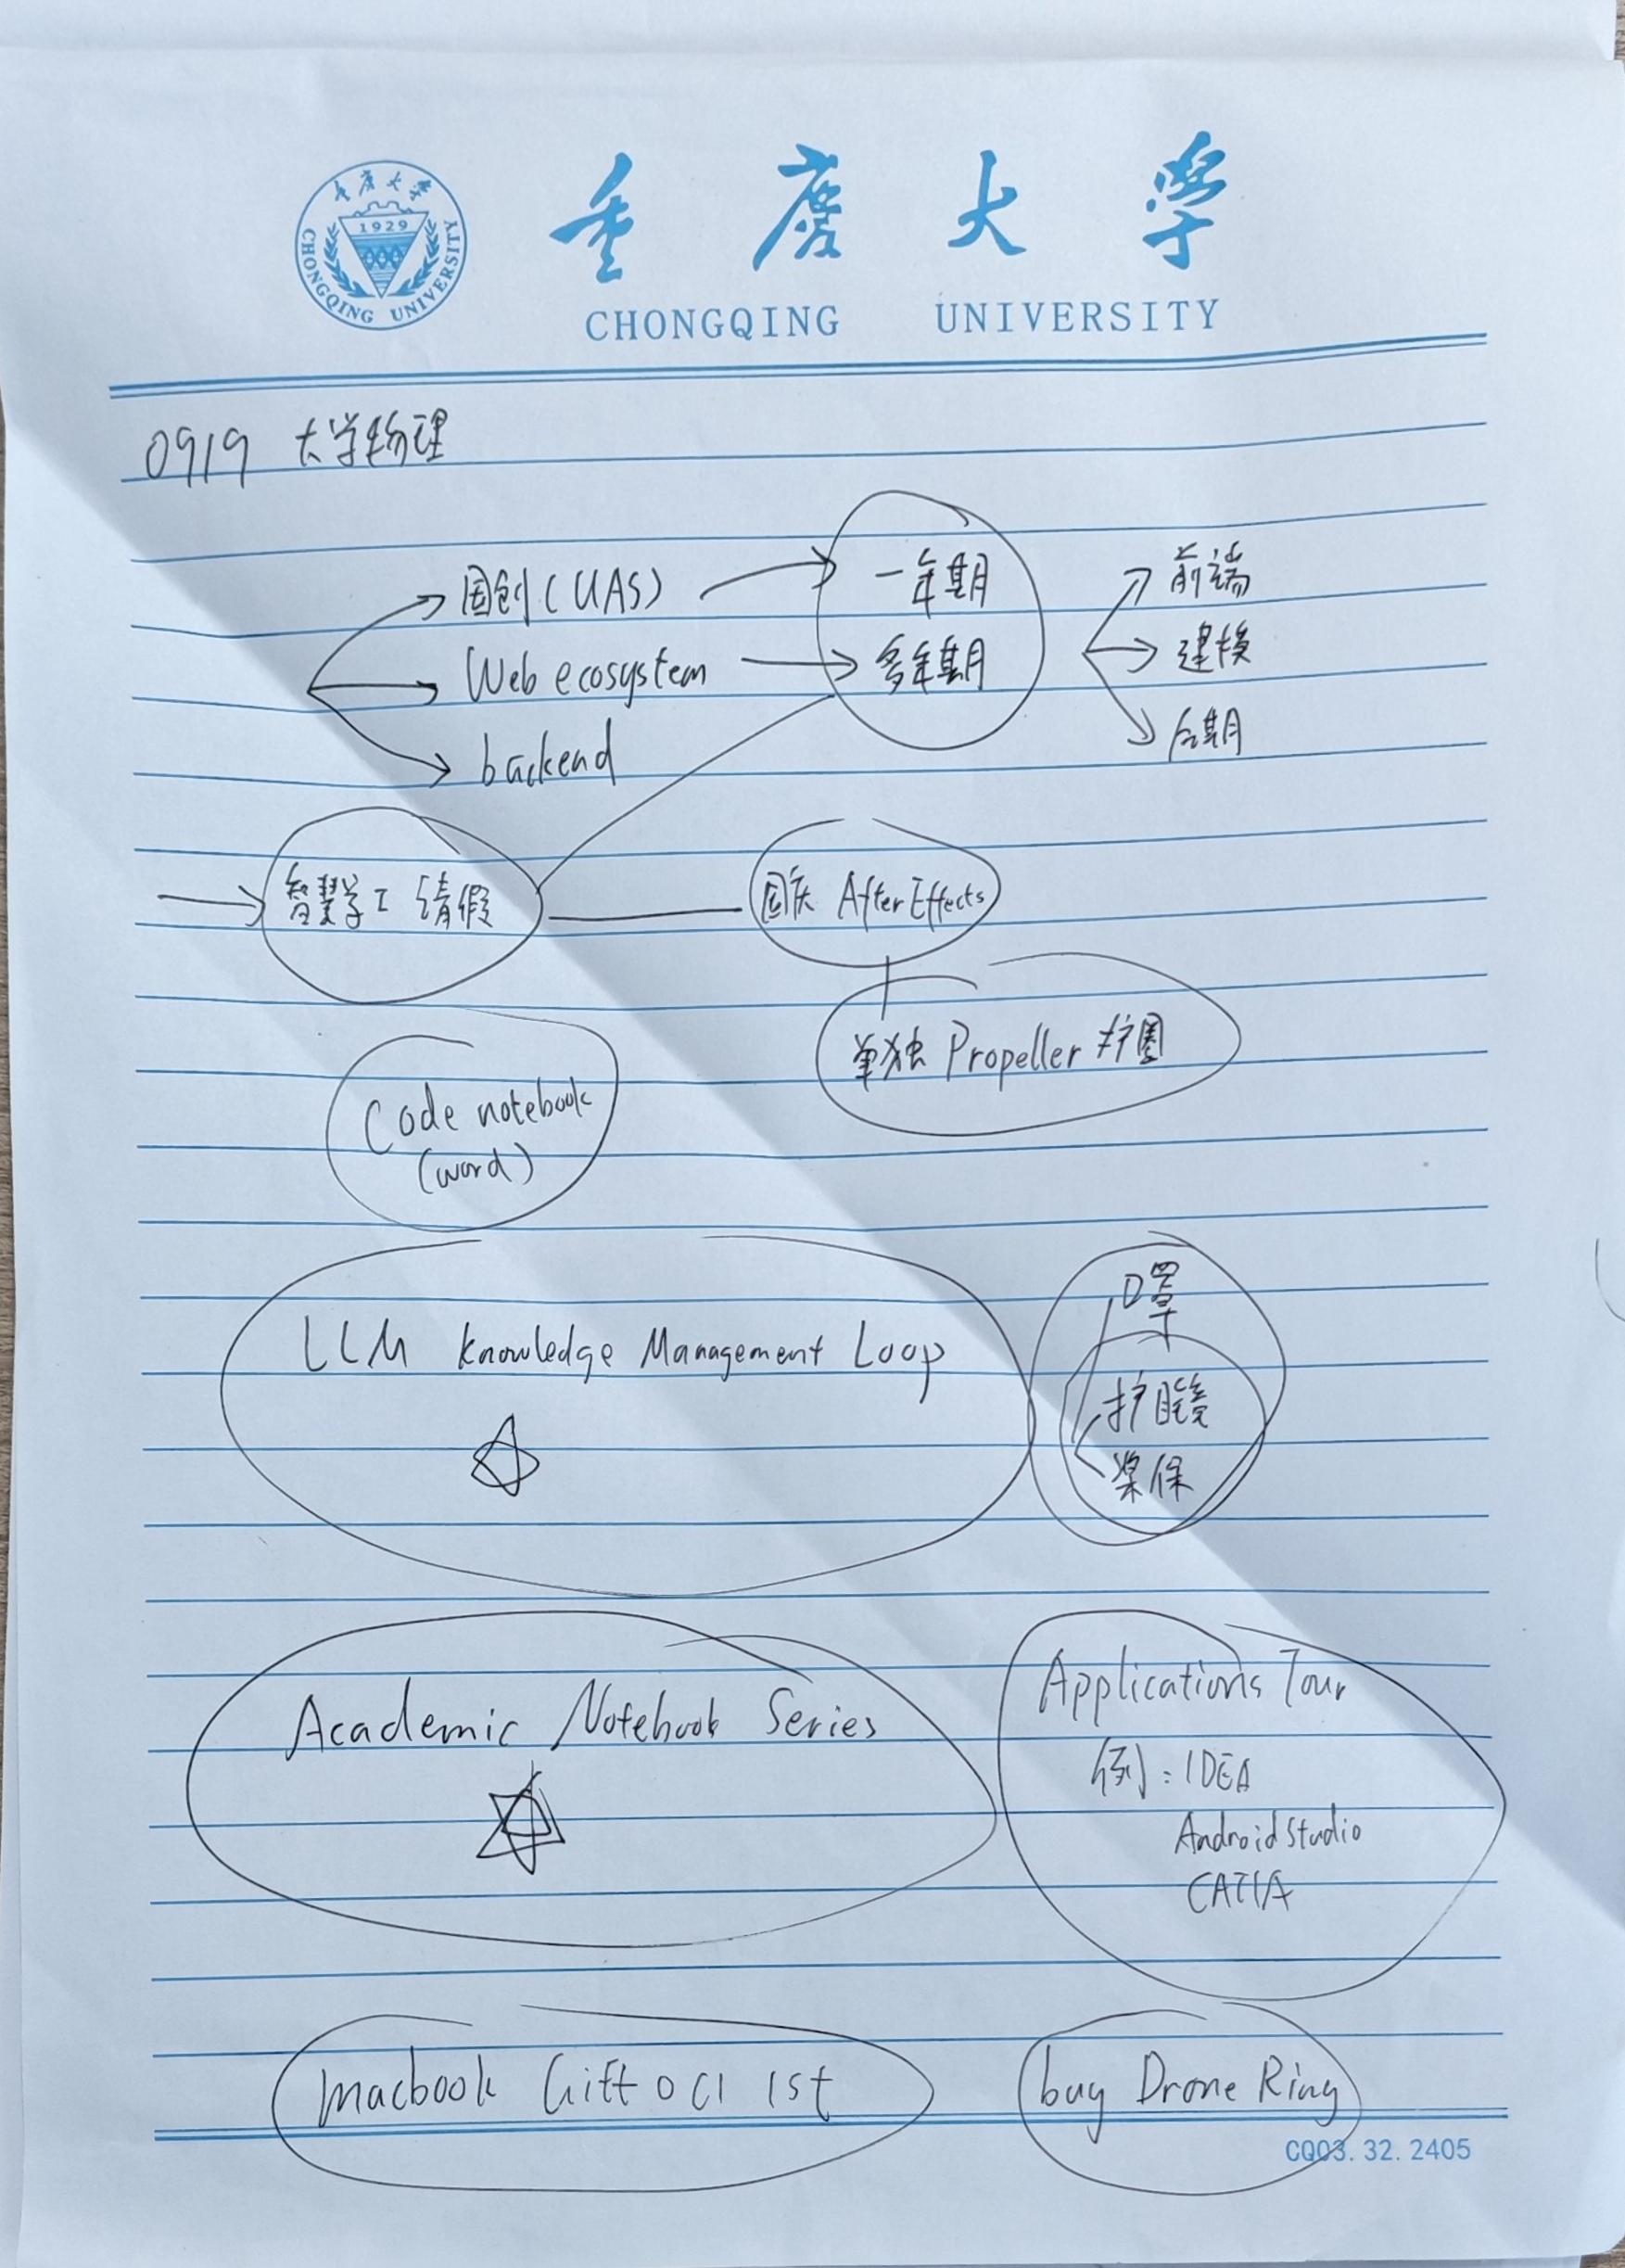 重庆大学
1929
CHONGQING UNIVERSITY
重慶大學
CHONGQING UNIVERSITY
0919 大学物理
国创(UAS) 一年期 前端
Web ecosystem 多年期 建模
backend 后期
智慧学工 请假 国庆 AfterEffects
单独 Propeller 护圈
Code notebook
(word)
口罩
LLM Knowledge Management Loop
护目镜
桨保
Academic Notebook Series
Applications Tour
例: IDEA
Android Studio
CATIA
Macbook Gift 1st
buy Drone Ring
CQ03.32.2405